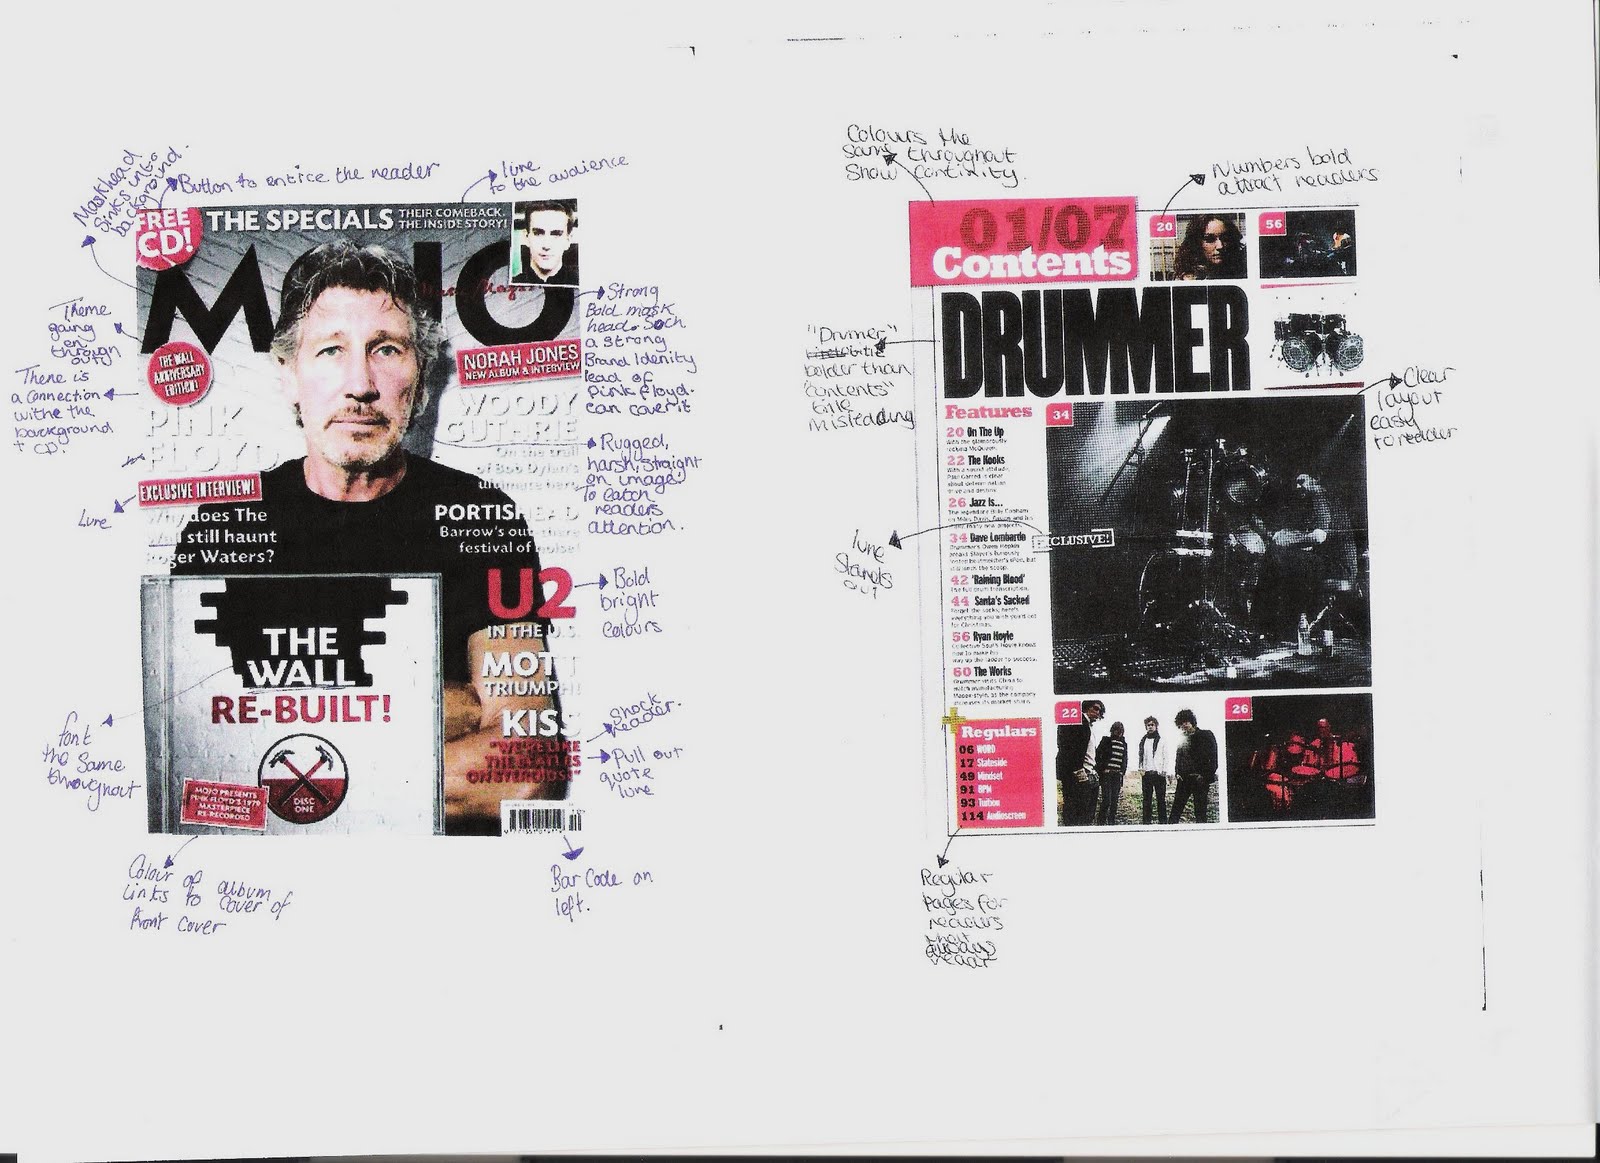 Maskhead
sinks into
background.
Button to entice the reader
lure
to the audience
FREE
CD!
THE SPECIALS
THEIR COMEBACK.
THE INSIDE STORY!
MOJO
Theme
going
on
through
out
THE WALL
ANNIVERSARY
EDITION!
There is
a connection
withe the
background
+ CD.
NORAH JONES
NEW ALBUM & INTERVIEW
Strong
Bold mask
head. Such
a strong
Brand Idenity
lead of
Pink Floyd.
can cover it
PINK
FLOYD
EXCLUSIVE INTERVIEW!
Lure
Why does The
Wall still haunt
Roger Waters?
WOODY
GUTHRIE
On the trail
of Bob Dylan's
ultimate hero
Rugged,
harsh, straight
on image.
To catch
readers
attention.
PORTISHEAD
Barrow's out-there
festival of noise!
U2
IN THE U.S.
Bold
bright
colours
MOTT
TRIUMPH!
KISS
"WE'RE LIKE
THE BEATLES
ON STEROIDS!"
Shock
reader.
Pull out
quote
lure
THE
WALL
RE-BUILT!
DISC
ONE
MOJO PRESENTS
PINK FLOYD'S 1979
MASTERPIECE
RE-RECORDED
font
the same
throughout
Colour of album
links to cover of
front cover
Bar Code on
left.
Colours the
same throughout
Show continity.
Numbers bold
attract readers
01/07
Contents
20
56
DRUMMER
"Drumer"
title
bolder than
"contents"
title
misleading
Clear
layout
easy
to reader
lure
stands
out
Features
20 On The Up
22 The Kooks
26 Jazz Is...
34 Dave Lombardo
42 'Raining Blood'
44 Santa's Sacked
56 Ryan Hoyle
60 The Works
34
EXCLUSIVE!
Regulars
06 WORD
17 Stateside
49 Mindset
91 BPM
93 Tuition
114 Audioscreen
22
26
Regular
pages for
readers
that
always
read